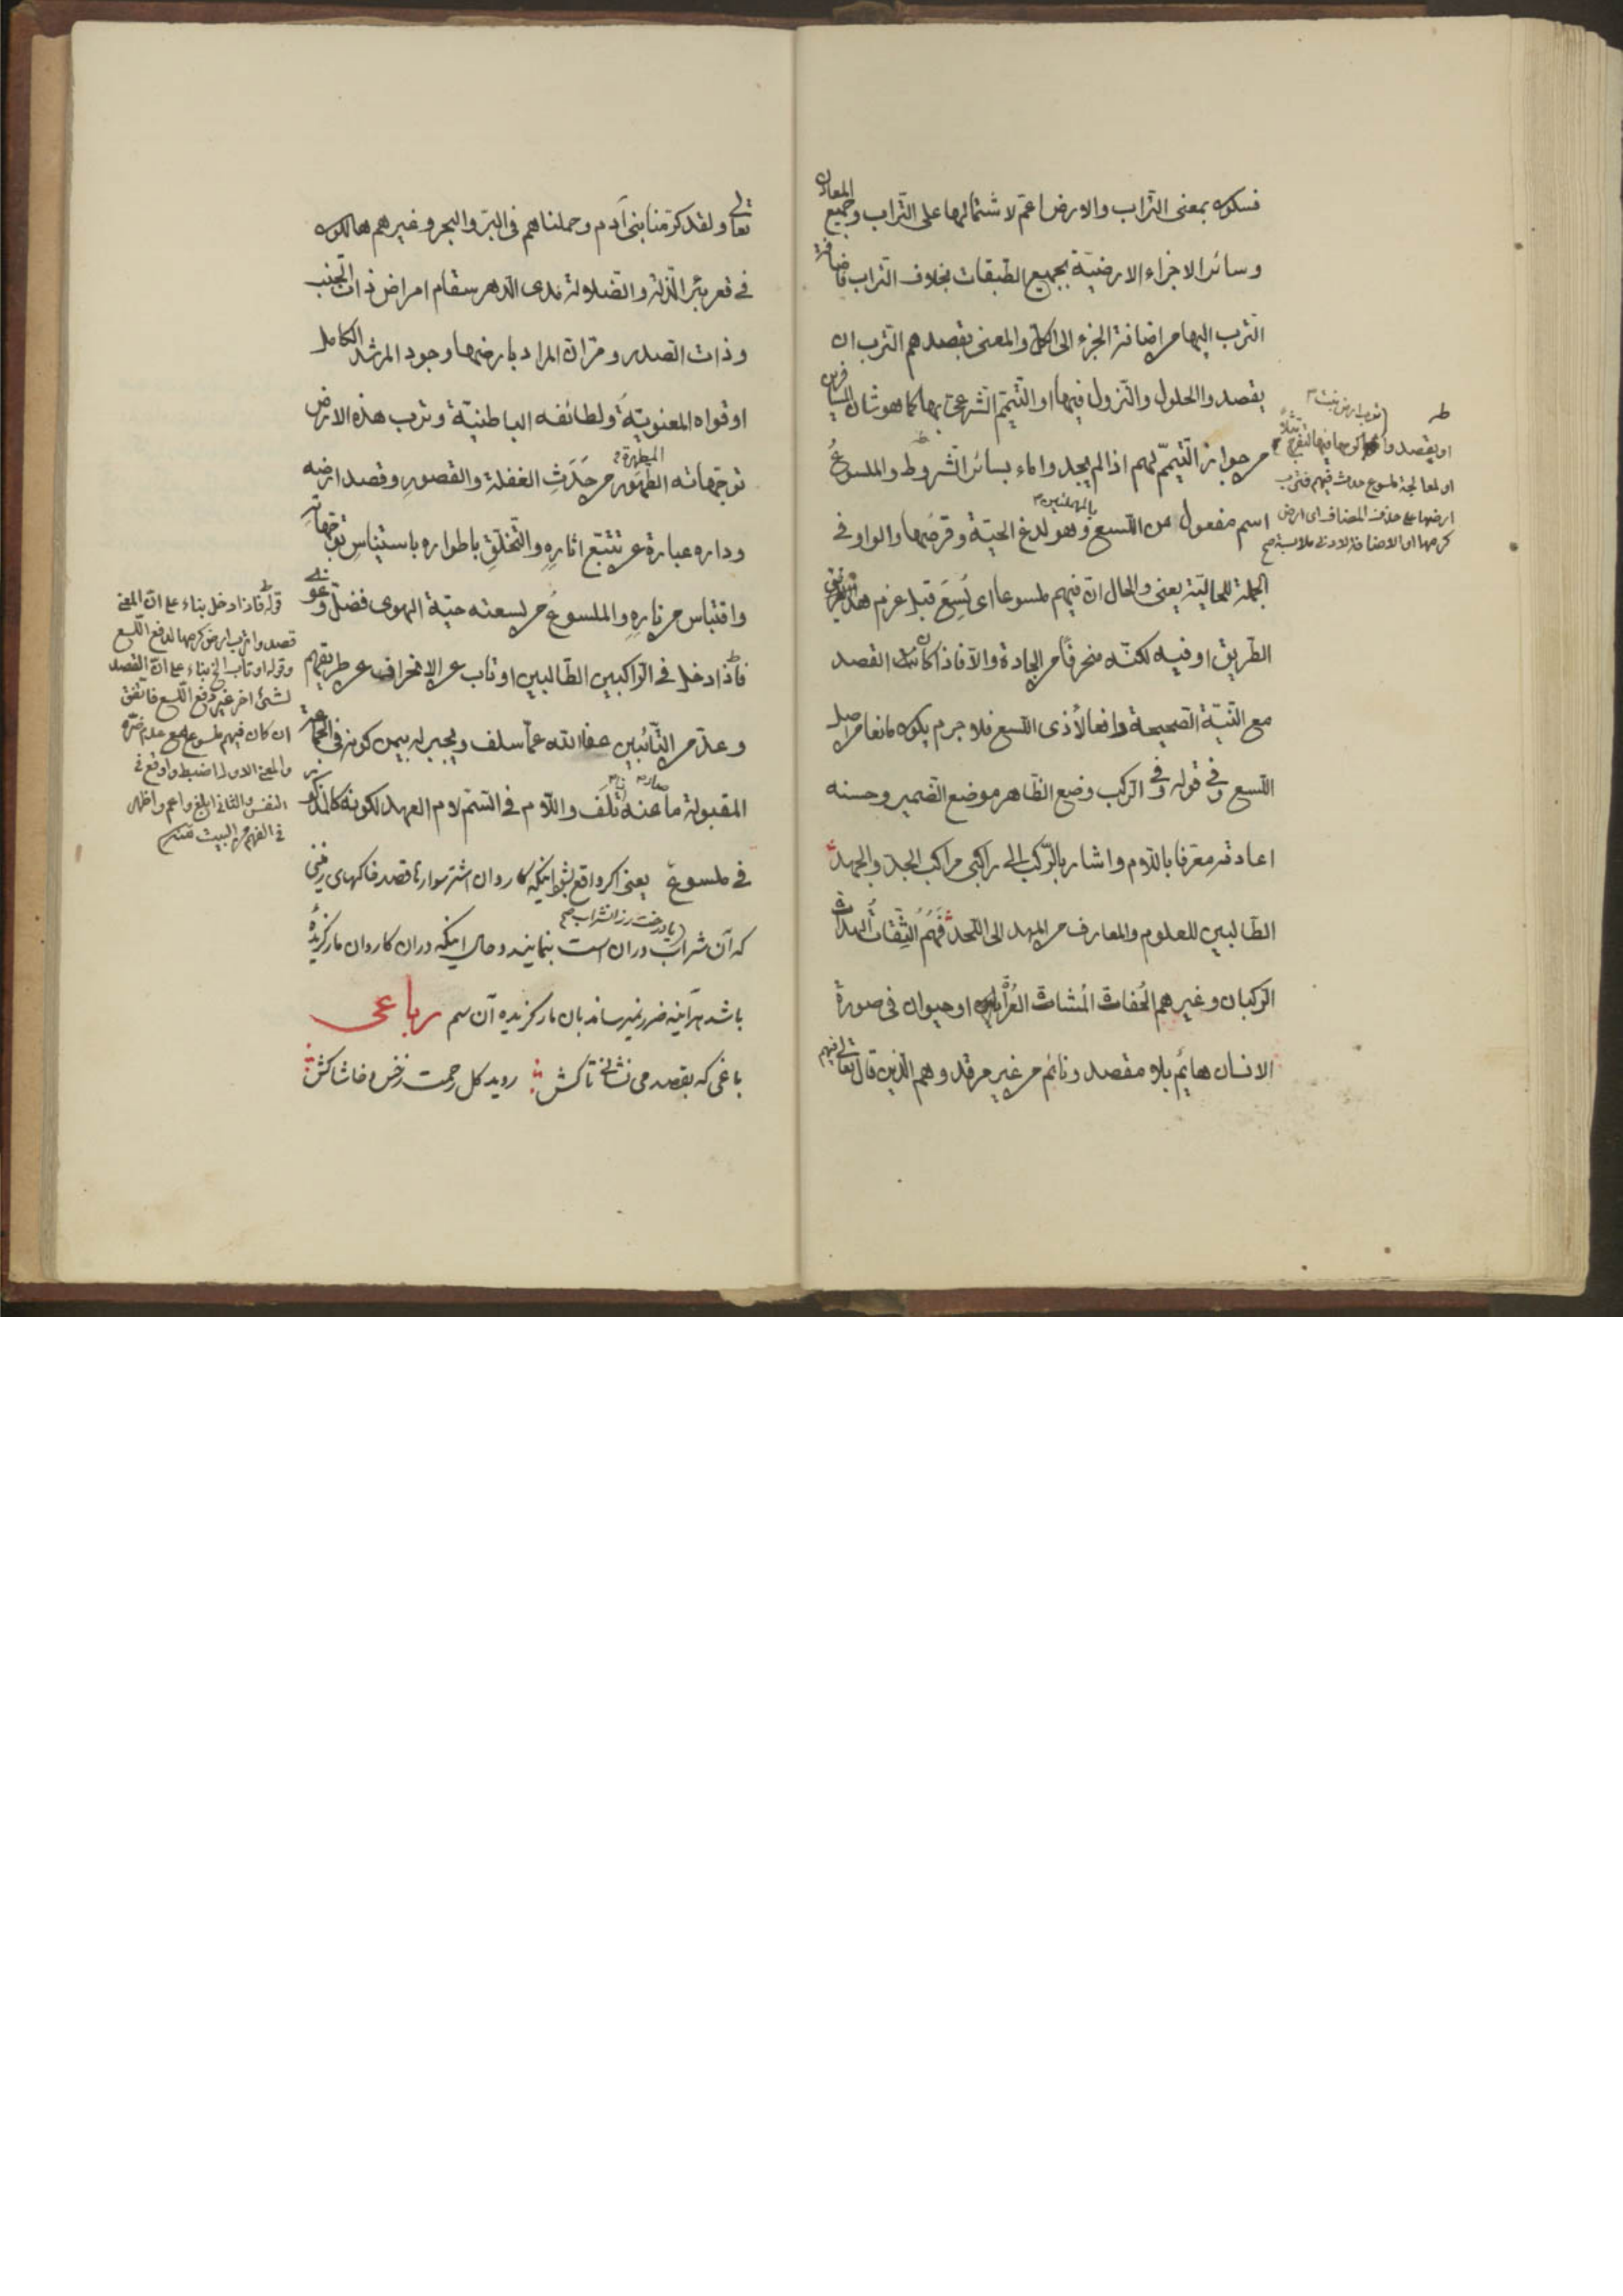 فسكون بمعنى التراب والارض اعم لاشتمالها على التراب وجميع المعادن
وسائر الاجزاء الارضيّة بجميع الطبقات بخلاف التراب فاضافة
الترب اليها من اضافة الجزء الى الكل والمعنى بقصدهم الترب ان
يقصدوا الحلول والنزول فيها او التيمّم الشرعى بها كما هو شان المسافرين
من جواز التيمّم لهم اذا لم يجدوا ماء بسائر الشروط والملسوع
اسم مفعول من اللسع بالمهملتين وهو لدغ الحيّة وقرصها والواو فى
الجملة للحاليّة يعنى والحال انّ فيهم ملسوعا اى لُسِعَ قبل عزم هذا
الطريق او فيه لكنّه منحرفًا من الجادة والّا فاذا كان القصد
مع النيّة الصحيحة دافعا لأذى اللسع فلا جرم يكون مانعا من اصل
اللسع وفى قوله وفى الركب وضع الظاهر موضع الضمير وحسنه
اعادته معرفا باللام واشار بالركب الى راكبى مراكب الجدّ والجهد
الطالبين للعلوم والمعارف من المهد الى اللحد فَهُم الثِقات الهداة
الركبان وغيرهم الحُفات المُشات العُراة او حيوان فى صورة
الانسان هائم بلا مقصد ونائم من غير مرقد وهم الذين قال تعالى فيهم
او يقصدوا كرمها فيها للتفرج مثلًا
او لمعالجة ملسوع حدث فيهم فترب
ارضها على حذف المضاف اى ارض
كرمها او الاضافة لادنى ملابسة صح
تعالى ولقد كرّمنا بنى آدم وحملناهم فى البرّ والبحر وغيرهم هالكون
فى قعر بئر الذلة والضلالة مدى الدهر سقام امراض ذات الجنب
وذات الصدر ومرّ ان المراد بارضها وجود المرشد الكامل
او قواه المعنويّة ولطائفه الباطنيّة وترب هذه الارض
توجّهاته الطهور المطهرة من حَدَثِ الغفلة والقصور وقصد ارضه
وداره عبارة عن تتبّع اثاره والتخلّق باطواره باستيناس توجّهاته
واقتباس من ناره والملسوع من لسعته حيّة الهوى فضلّ وغوى
فاذا دخل فى الراكبين الطالبين او تاب عن الانحراف عن طريقهم
وعدّ من التائبين عفا الله عمّا سلف ويجبر له بيمن كونه فى الجماعة
المقبولة ما عنه تلف واللام فى السّم لام العهد لكونه كالمذكور
فى ملسوع يعنى اكر واقع بشود اينكه كاروان اشتر سوار تا قصد خاكهاى زمينى
كه آن شراب دران است يا درخت رز الشراب صح بنمايند وحال اينكه دران كاروان مار كزيدهٔ
باشد هرآئينه ضرر نميرساند بان مار كزيده آن سم رباعى
باغى كه بقصد مى نشانى تاكش رويد كل رحمت زخس وخاشاكش
قوله فاذا دخل بناء على انّ المعنى
قصدوا ترب ارض كرمها لدفع اللسع
وقوله او تاب الخ بناء على انّ القصد
لشئ اخر غير دفع اللسع فاتفق
ان كان فيهم ملسوع مع عدم ضرّه
والمعنى الاول اضبط واوقع فى
النفس والثانى ابلغ واعم واظهر
فى الفهم من البيت منه